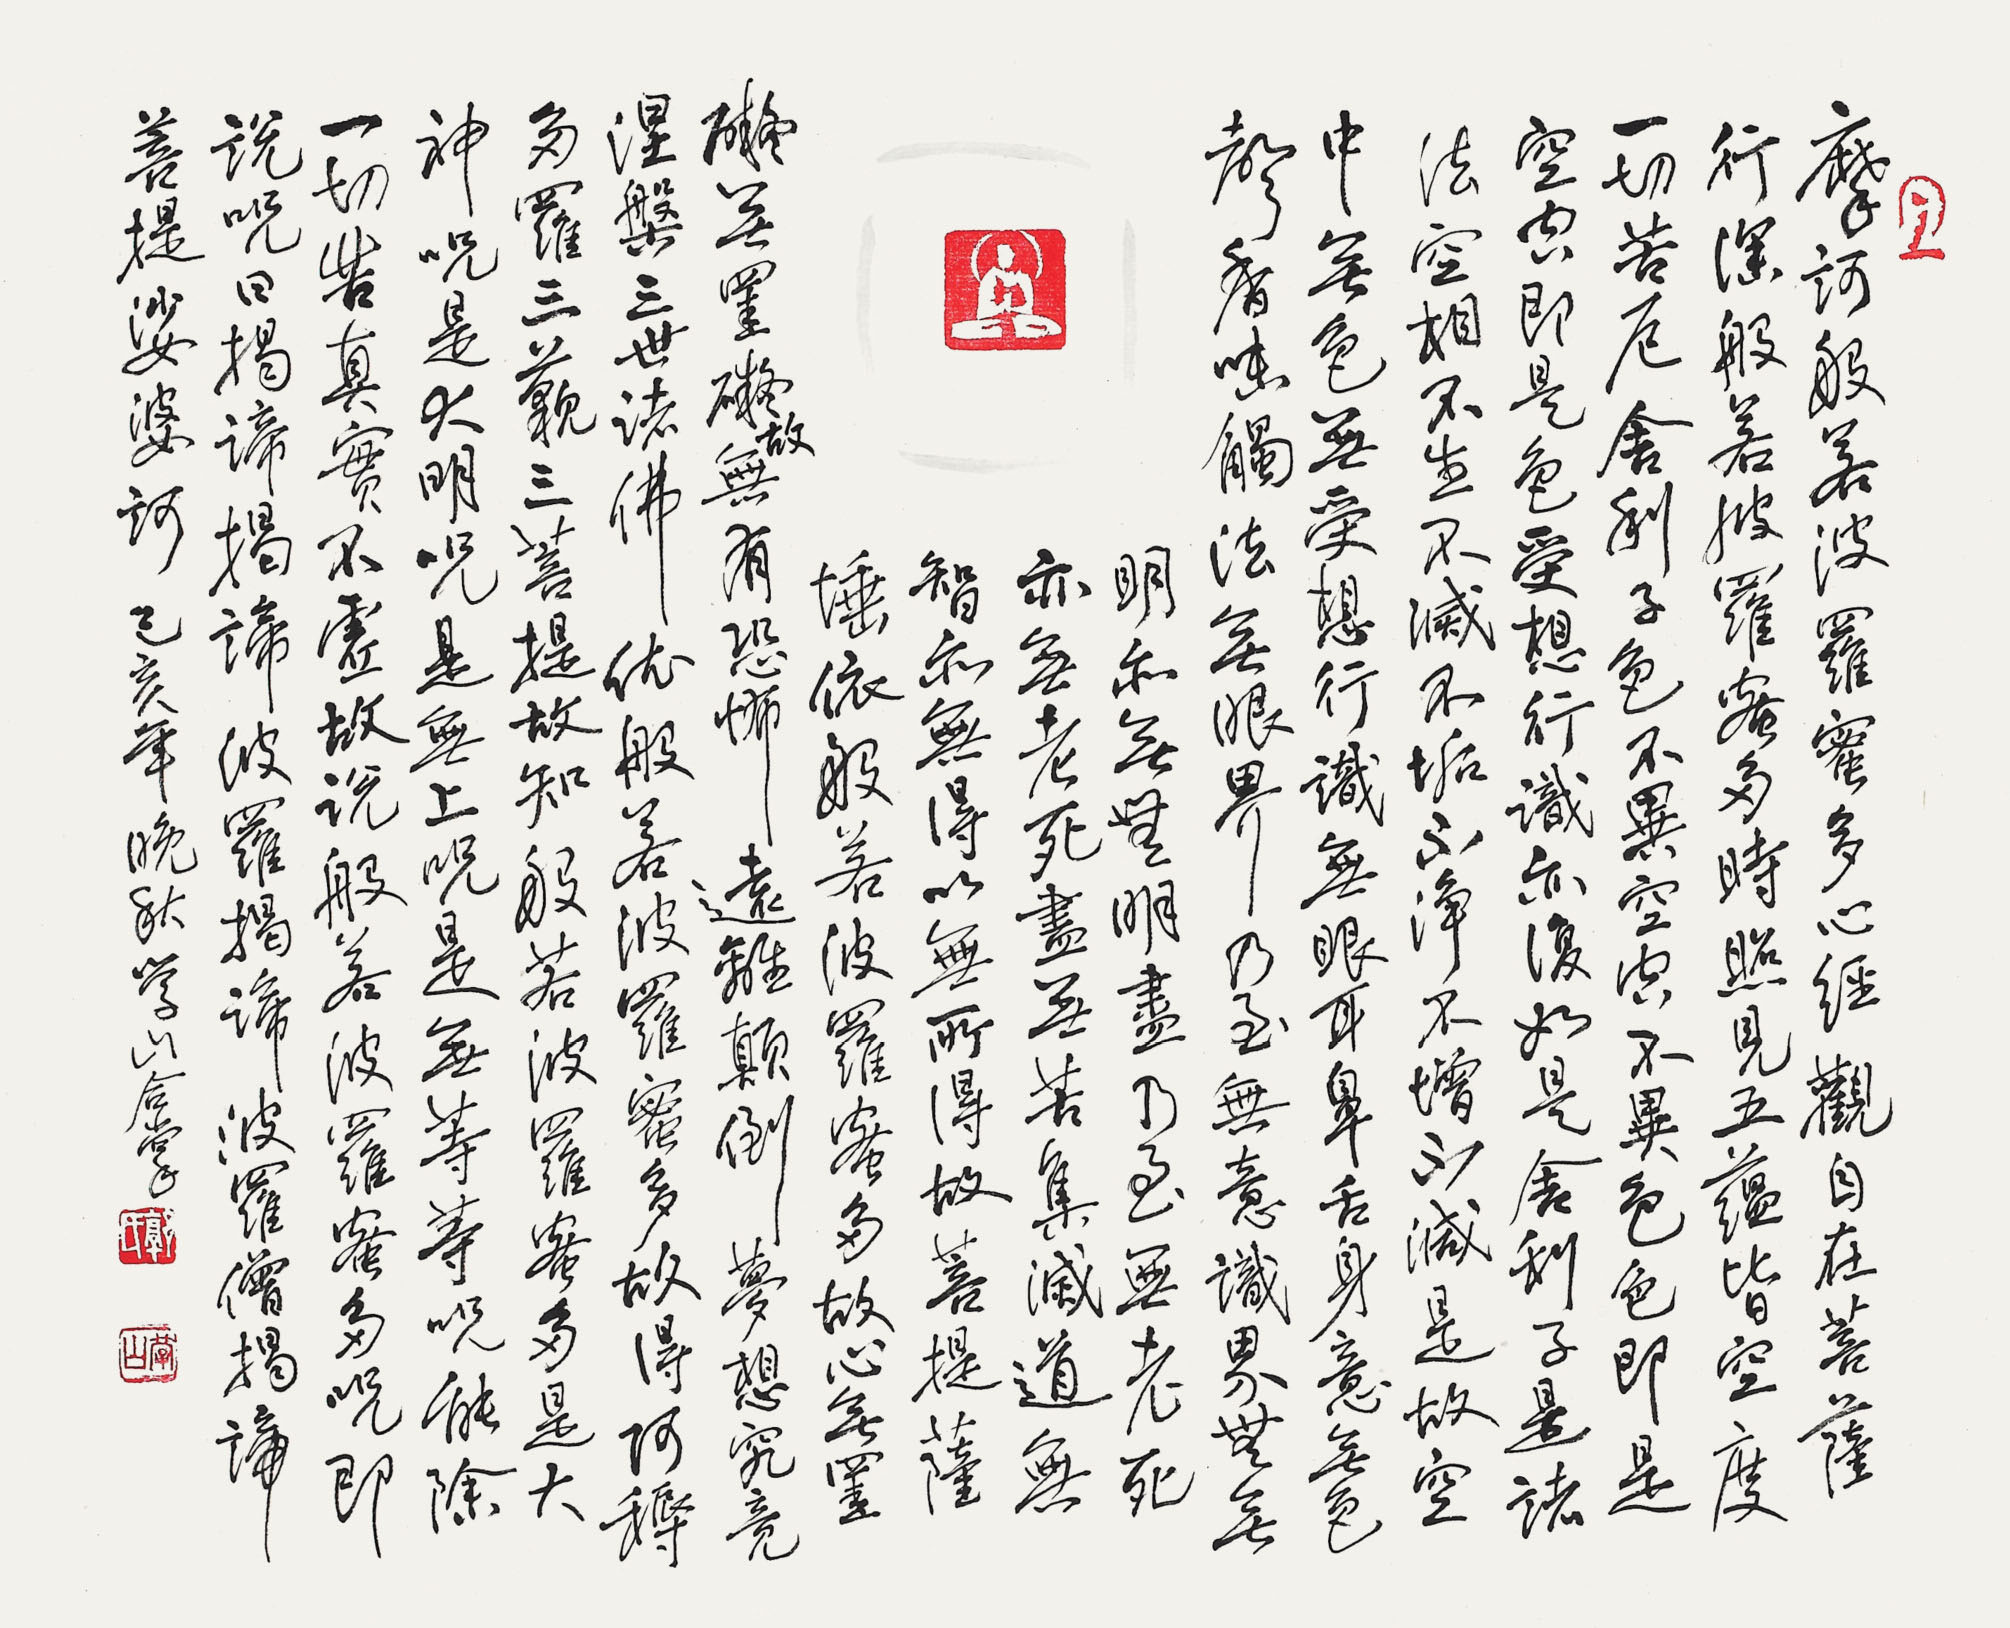 摩訶般若波羅蜜多心經觀自在菩薩
行深般若波羅蜜多時照見五蘊皆空度
一切苦厄舍利子色不異空空不異色色即是
空空即是色受想行識亦復如是舍利子是諸
法空相不生不滅不垢不淨不增不減是故空
中無色無受想行識無眼耳鼻舌身意無色
聲香味觸法無眼界乃至無意識界無無
明亦無無明盡乃至無老死
亦無老死盡無苦集滅道無
智亦無得以無所得故菩提薩
埵依般若波羅蜜多故心無罣
礙無罣礙故無有恐怖遠離顛倒夢想究竟
涅槃三世諸佛依般若波羅蜜多故得阿耨
多羅三藐三菩提故知般若波羅蜜多是大
神呪是大明呪是無上呪是無等等呪能除
一切苦真實不虛故說般若波羅蜜多呪即
說呪曰揭諦揭諦波羅揭諦波羅僧揭諦
菩提娑婆訶 己亥年晚秋学山合掌
學山